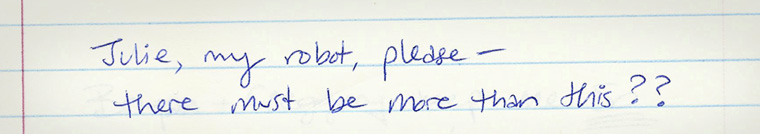 Julie, my robot, please —
there must be more than this??